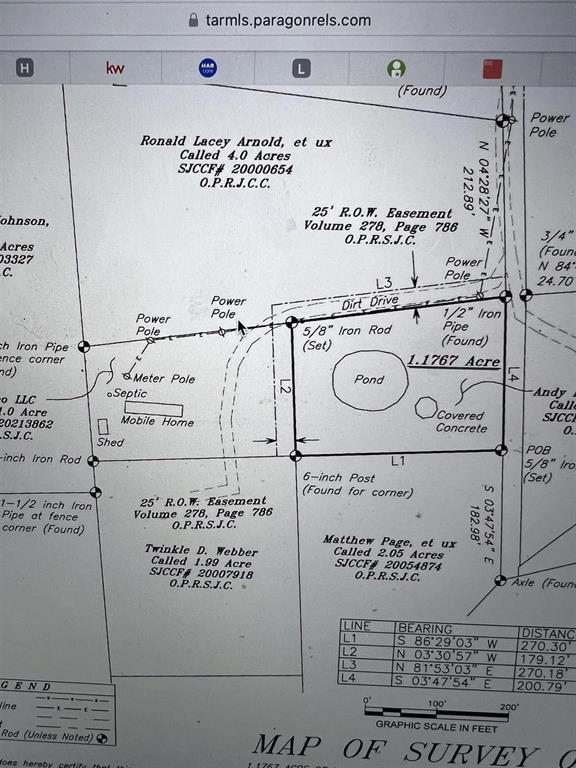 tarmls.paragonrels.com
H
kw
HAR
.com
L
(Found)
Power
Pole
Ronald Lacey Arnold, et ux
Called 4.0 Acres
SJCCF# 20000654
O.P.R.J.C.C.
N 04°28'27" W
212.89'
25' R.O.W. Easement
Volume 278, Page 786
O.P.R.S.J.C.
ohnson,
Acres
03327
.C.
3/4"
(Foun
N 84°
24.70
Power
Pole
L3
Dirt Drive
Power
Pole
Power
Pole
5/8" Iron Rod
(Set)
1/2" Iron
Pipe
(Found)
1.1767 Acre
ch Iron Pipe
ence corner
nd)
Meter Pole
Septic
Mobile Home
Shed
L2
Pond
L4
Covered
Concrete
Andy
Calle
SJCC
O.
o LLC
1.0 Acre
20213862
.S.J.C.
-inch Iron Rod
L1
POB
5/8" Iro
(Set)
6-inch Post
(Found for corner)
1-1/2 inch Iron
Pipe at fence
corner (Found)
25' R.O.W. Easement
Volume 278, Page 786
O.P.R.S.J.C.
S 03°47'54" E
182.98'
Twinkle D. Webber
Called 1.99 Acre
SJCCF# 20007918
O.P.R.S.J.C.
Matthew Page, et ux
Called 2.05 Acres
SJCCF# 20054874
O.P.R.S.J.C.
Axle (Foun
LINE BEARING DISTANC
L1 S 86°29'03" W 270.30'
L2 N 03°30'57" W 179.12'
L3 N 81°53'03" E 270.18'
L4 S 03°47'54" E 200.79'
G E N D
line
Rod (Unless Noted)
0' 100' 200'
GRAPHIC SCALE IN FEET
MAP OF SURVEY O
does hereby certify that this